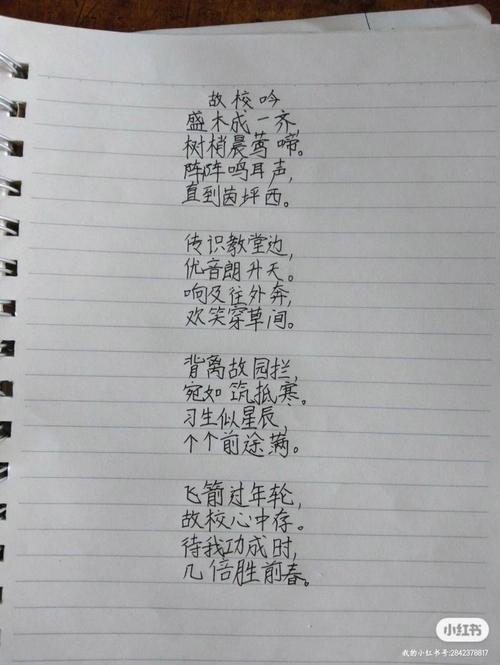 故校吟
盛木成一齐
树梢晨莺啼。
阵阵鸣耳声，
直到茵坪西。
传识教堂边，
优音朗升天。
响及往外奔，
欢笑穿草间。
背离故园拦，
宛如筑抵寒。
习生似星辰，
个个前途满。
飞箭过年轮，
故校心中存。
待我功成时，
几倍胜前春。
小红书
我的小红书号:2842378817